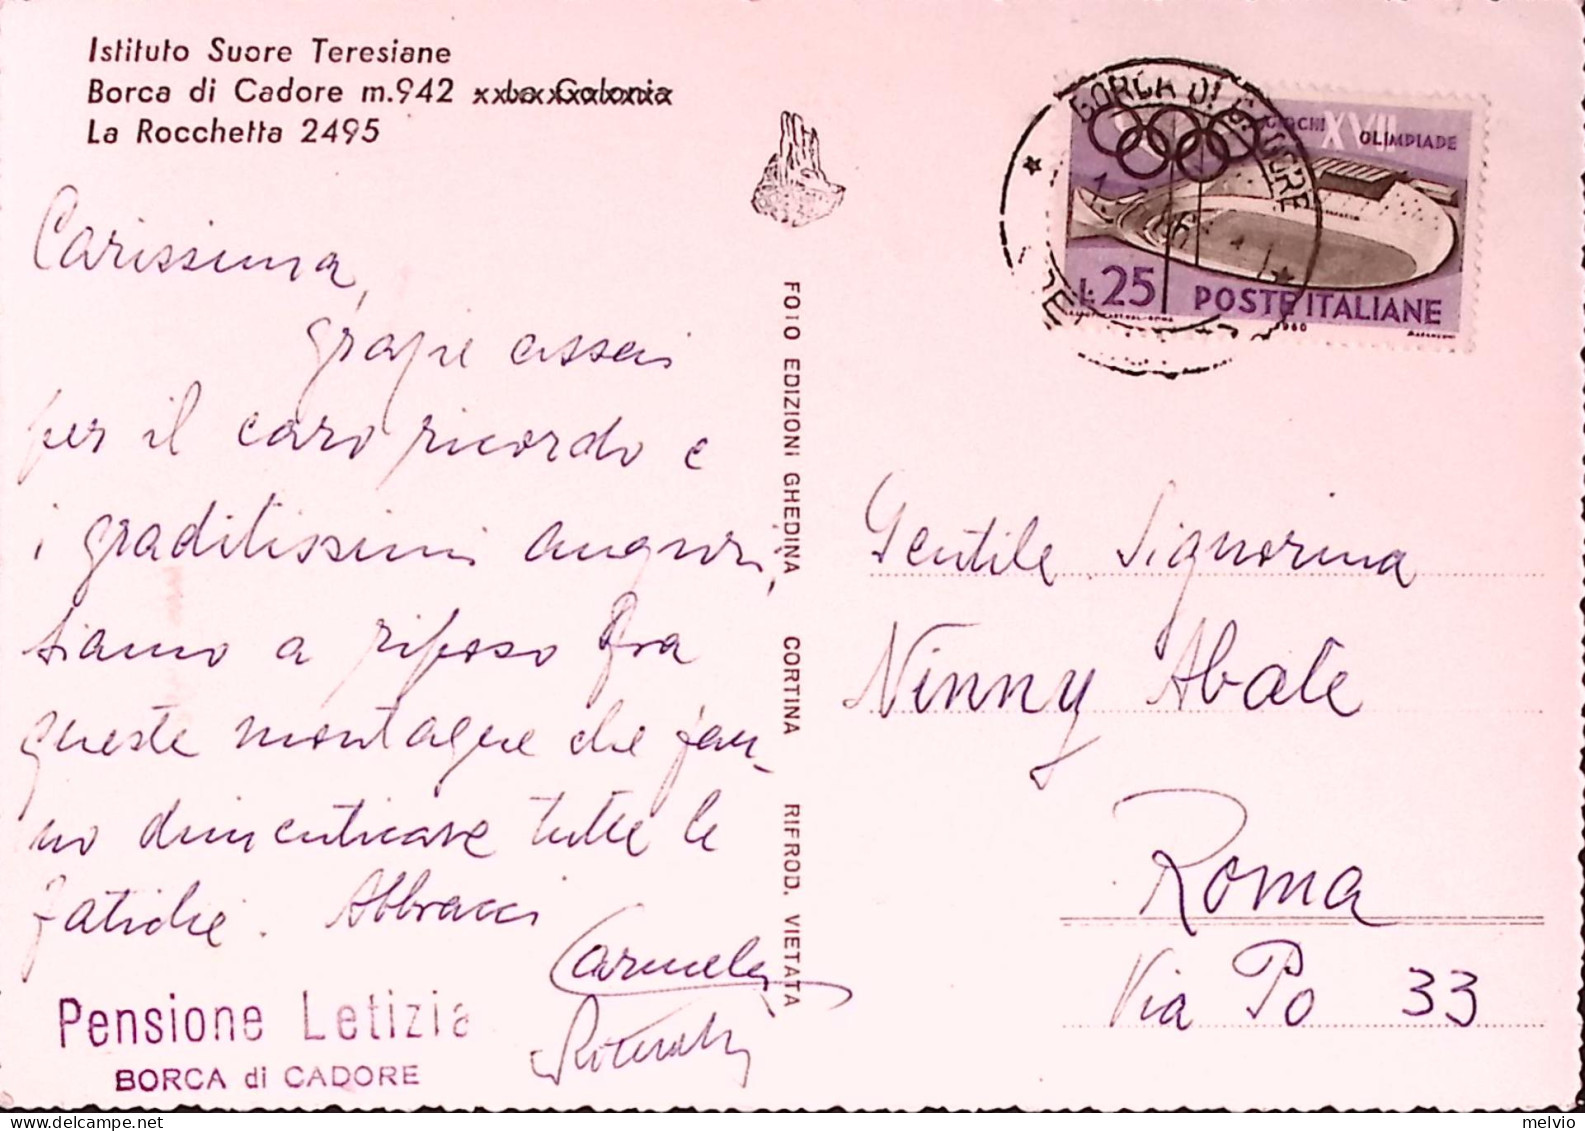 Istituto Suore Teresiane
Borca di Cadore m.942 xxLaxColoniax
La Rocchetta 2495
Carissima,
grazie assai
per il caro ricordo e
i graditissimi auguri,
siamo a riposo fra
queste montagne che fan-
no dimenticare tutte le
fatiche. Abbracci
Carmela
Pensione Letizia
BORCA di CADORE
FOTO EDIZIONI GHEDINA CORTINA RIFROD. VIETATA
BORCA DI CADORE
GIOCHI XVII OLIMPIADE
L.25 POSTE ITALIANE
1960
Gentile Signorina
Ninny Abate
Roma
Via Po 33
melvio